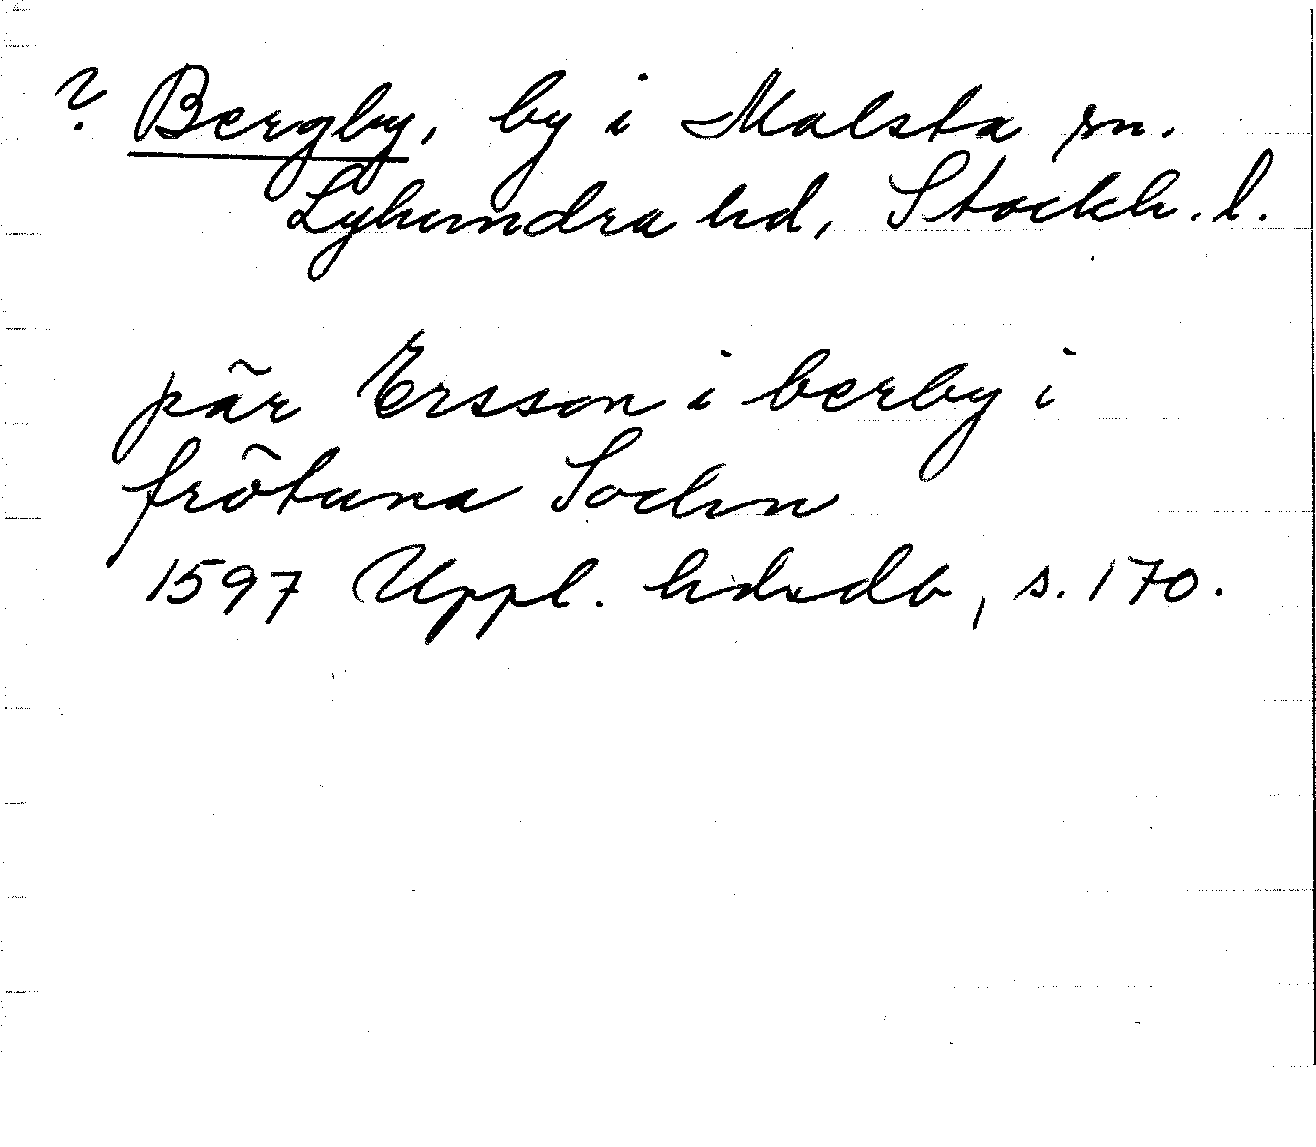 ? Bergby, by i Malsta sn.
Lyhundra hd, Stockh. l.
pär Ersson i berby i
frötuna Sochn
1597 Uppl. hdsdb, s. 170.